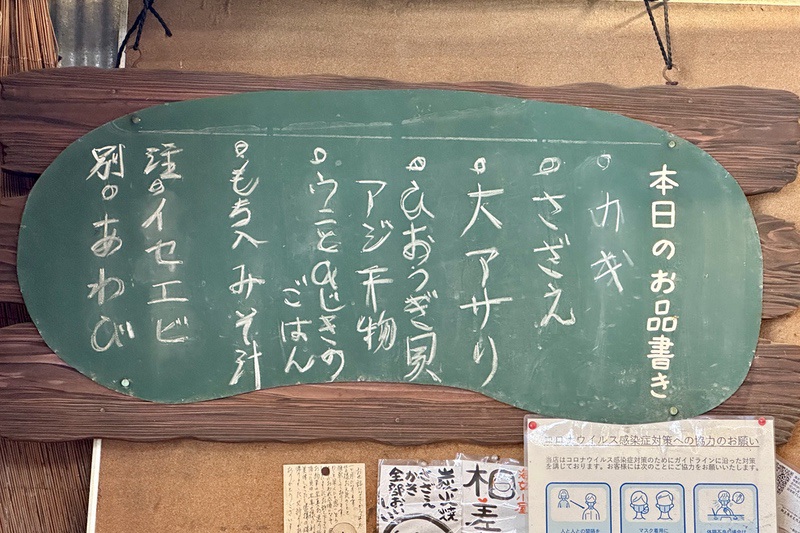 本日のお品書き
◦カキ
◦さざえ
◦大アサリ
◦ひおうぎ貝
アジ干物
◦ウニとひじきの
ごはん
◦もち入みそ汁
注◦イセエビ
別◦あわび
コロナウイルス感染症対策への協力のお願い
当店はコロナウイルス感染症対策のためにガイドラインに沿った対策
を講じております。お客様には次のことにご協力をお願いいたします。
人と人との間隔を
マスク着用に
炭火焼
さざえ
かき
全部おいしい
相差
海女小屋